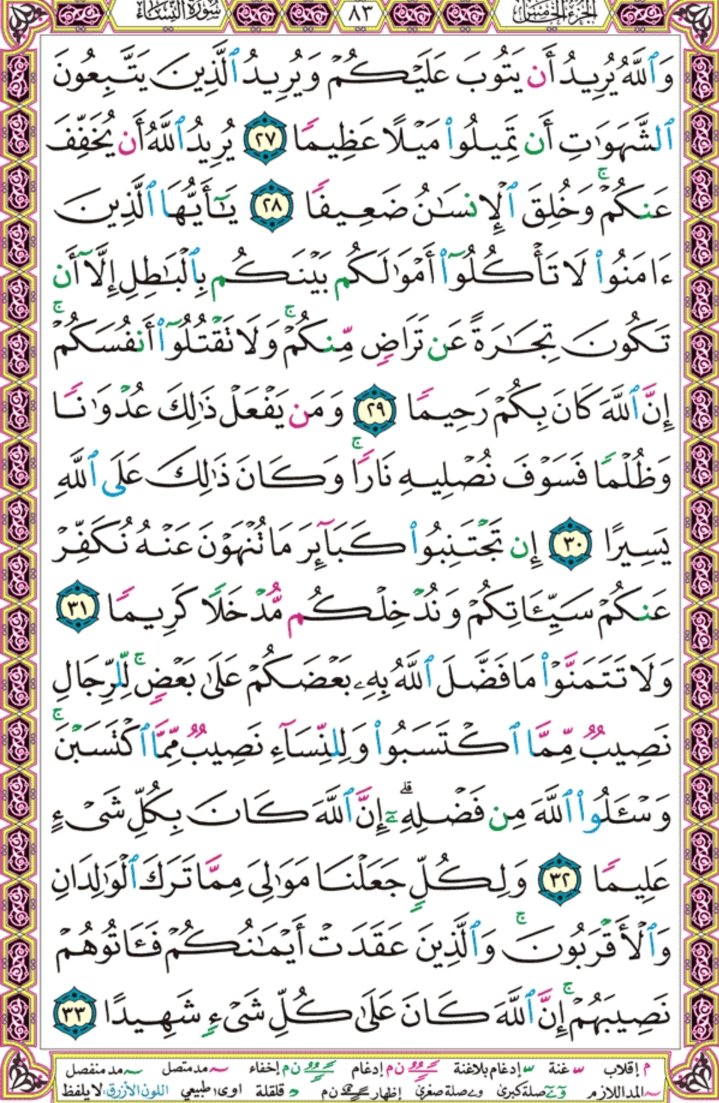 سُورَةُ النِّسَاءِ ٨٣ الجُزْءُ الخَامِسُ
وَٱللَّهُ يُرِيدُ أَن يَتُوبَ عَلَيْكُمْ وَيُرِيدُ ٱلَّذِينَ يَتَّبِعُونَ
ٱلشَّهَوَٰتِ أَن تَمِيلُوا۟ مَيْلًا عَظِيمًا ٢٧ يُرِيدُ ٱللَّهُ أَن يُخَفِّفَ
عَنكُمْ ۚ وَخُلِقَ ٱلْإِنسَـٰنُ ضَعِيفًا ٢٨ يَـٰٓأَيُّهَا ٱلَّذِينَ
ءَامَنُوا۟ لَا تَأْكُلُوٓا۟ أَمْوَٰلَكُم بَيْنَكُم بِٱلْبَـٰطِلِ إِلَّآ أَن
تَكُونَ تِجَـٰرَةً عَن تَرَاضٍ مِّنكُمْ ۚ وَلَا تَقْتُلُوٓا۟ أَنفُسَكُمْ ۚ
إِنَّ ٱللَّهَ كَانَ بِكُمْ رَحِيمًا ٢٩ وَمَن يَفْعَلْ ذَٰلِكَ عُدْوَٰنًا
وَظُلْمًا فَسَوْفَ نُصْلِيهِ نَارًا ۚ وَكَانَ ذَٰلِكَ عَلَى ٱللَّهِ
يَسِيرًا ٣٠ إِن تَجْتَنِبُوا۟ كَبَآئِرَ مَا تُنْهَوْنَ عَنْهُ نُكَفِّرْ
عَنكُمْ سَيِّـَٔاتِكُمْ وَنُدْخِلْكُم مُّدْخَلًا كَرِيمًا ٣١
وَلَا تَتَمَنَّوْا۟ مَا فَضَّلَ ٱللَّهُ بِهِۦ بَعْضَكُمْ عَلَىٰ بَعْضٍ ۚ لِّلرِّجَالِ
نَصِيبٌ مِّمَّا ٱكْتَسَبُوا۟ ۖ وَلِلنِّسَآءِ نَصِيبٌ مِّمَّا ٱكْتَسَبْنَ ۚ
وَسْـَٔلُوا۟ ٱللَّهَ مِن فَضْلِهِۦٓ ۗ إِنَّ ٱللَّهَ كَانَ بِكُلِّ شَىْءٍ
عَلِيمًا ٣٢ وَلِكُلٍّ جَعَلْنَا مَوَٰلِىَ مِمَّا تَرَكَ ٱلْوَٰلِدَانِ
وَٱلْأَقْرَبُونَ ۚ وَٱلَّذِينَ عَقَدَتْ أَيْمَـٰنُكُمْ فَـَٔاتُوهُمْ
نَصِيبَهُمْ ۚ إِنَّ ٱللَّهَ كَانَ عَلَىٰ كُلِّ شَىْءٍ شَهِيدًا ٣٣
م إقلاب غنة إدغام بلاغنة ن م إدغام ن م إخفاء مد متصل مد منفصل
المد اللازم صلة كبرى صلة صغرى إظهار ن م قلقلة اوى: طبيعي اللون الأزرق: لا يلفظ